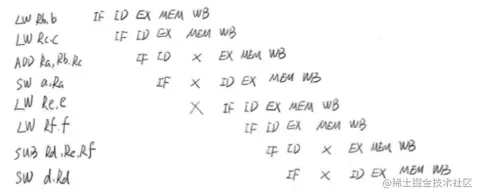 LW Rb.b IF ID EX MEM WB
LW Rc.c IF ID EX MEM WB
ADD Ra,Rb.Rc IF ID × EX MEM WB
SW a.Ra IF × ID EX MEM WB
LW Re.e × IF ID EX MEM WB
LW Rf.f IF ID EX MEM WB
SUB Rd.Re.Rf IF ID × EX MEM WB
SW d.Rd IF × ID EX MEM WB
@稀土掘金技术社区